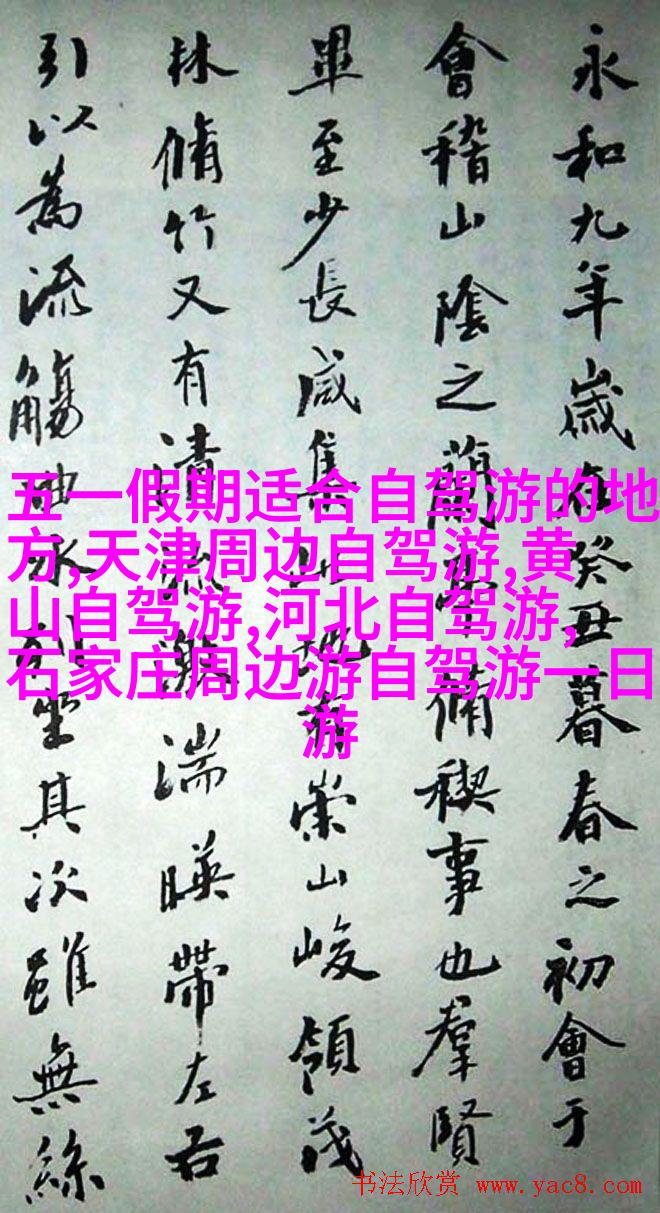 永和九年歲在癸丑暮春之初會于
會稽山陰之蘭亭脩稧事也羣賢
畢至少長咸集此地有崇山峻領茂
林脩竹又有清流激湍暎帶左右
引以為流觴曲水列坐其次雖無絲
五一假期适合自驾游的地
方,天津周边自驾游,黄
山自驾游,河北自驾游,
石家庄周边游自驾游一日
游
书法欣赏 www.yac8.com